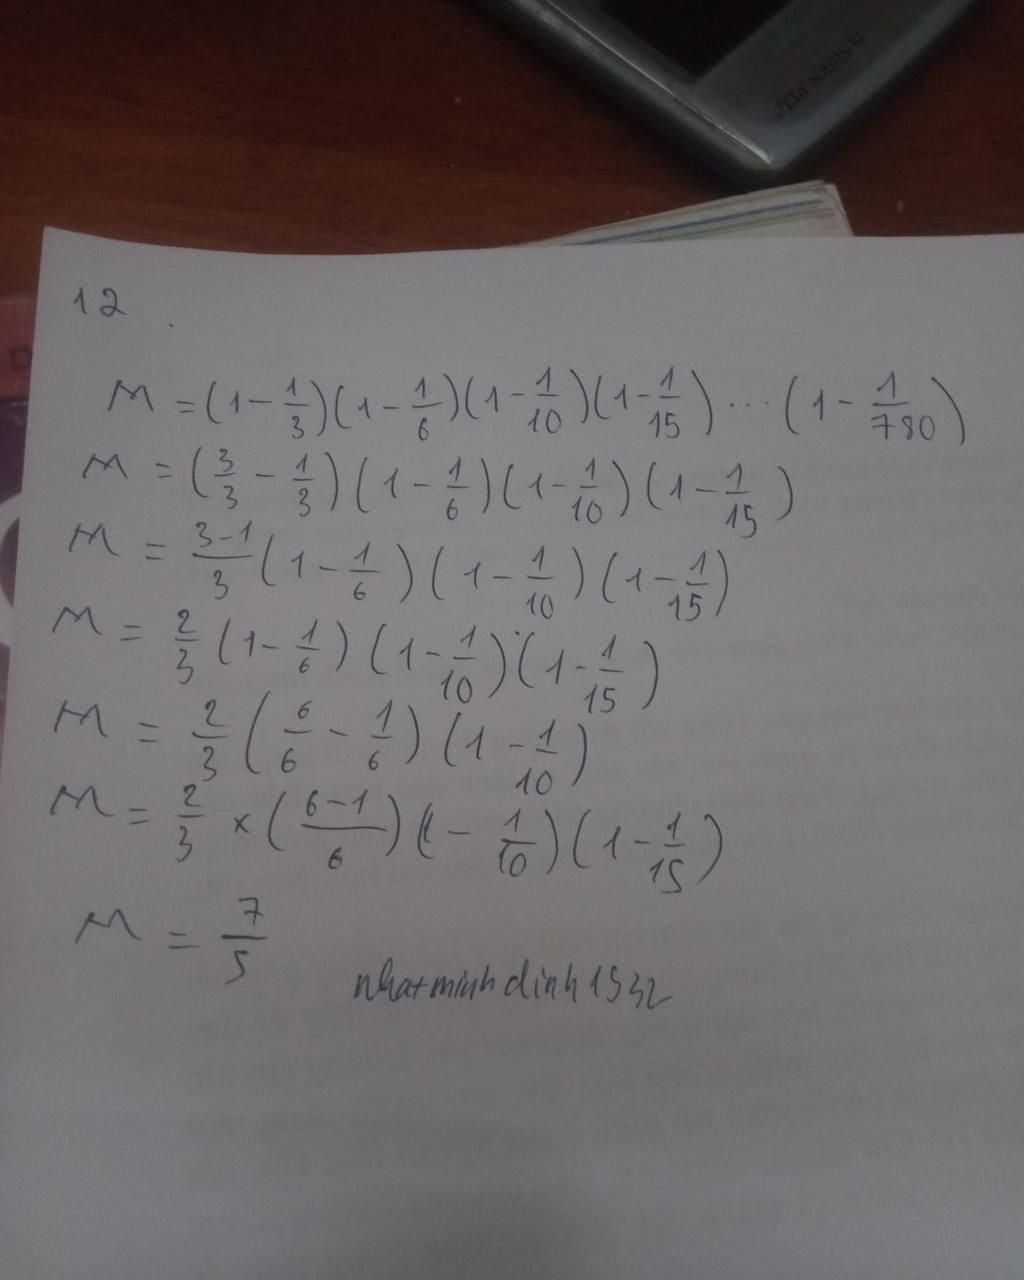 12 .
M = (1 - 1/3)(1 - 1/6)(1 - 1/10)(1 - 1/15) ... (1 - 1/780)
M = (3/3 - 1/3)(1 - 1/6)(1 - 1/10)(1 - 1/15)
M = (3-1)/3 (1 - 1/6)(1 - 1/10)(1 - 1/15)
M = 2/3 (1 - 1/6)(1 - 1/10)(1 - 1/15)
M = 2/3 (6/6 - 1/6)(1 - 1/10)
M = 2/3 × ((6-1)/6)(1 - 1/10)(1 - 1/15)
M = 7/5
nhatminhdinh1532